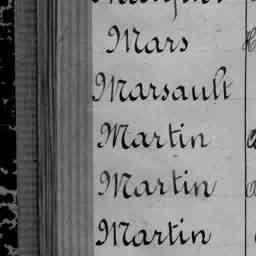 Mars
Marsault
Martin
Martin
Martin